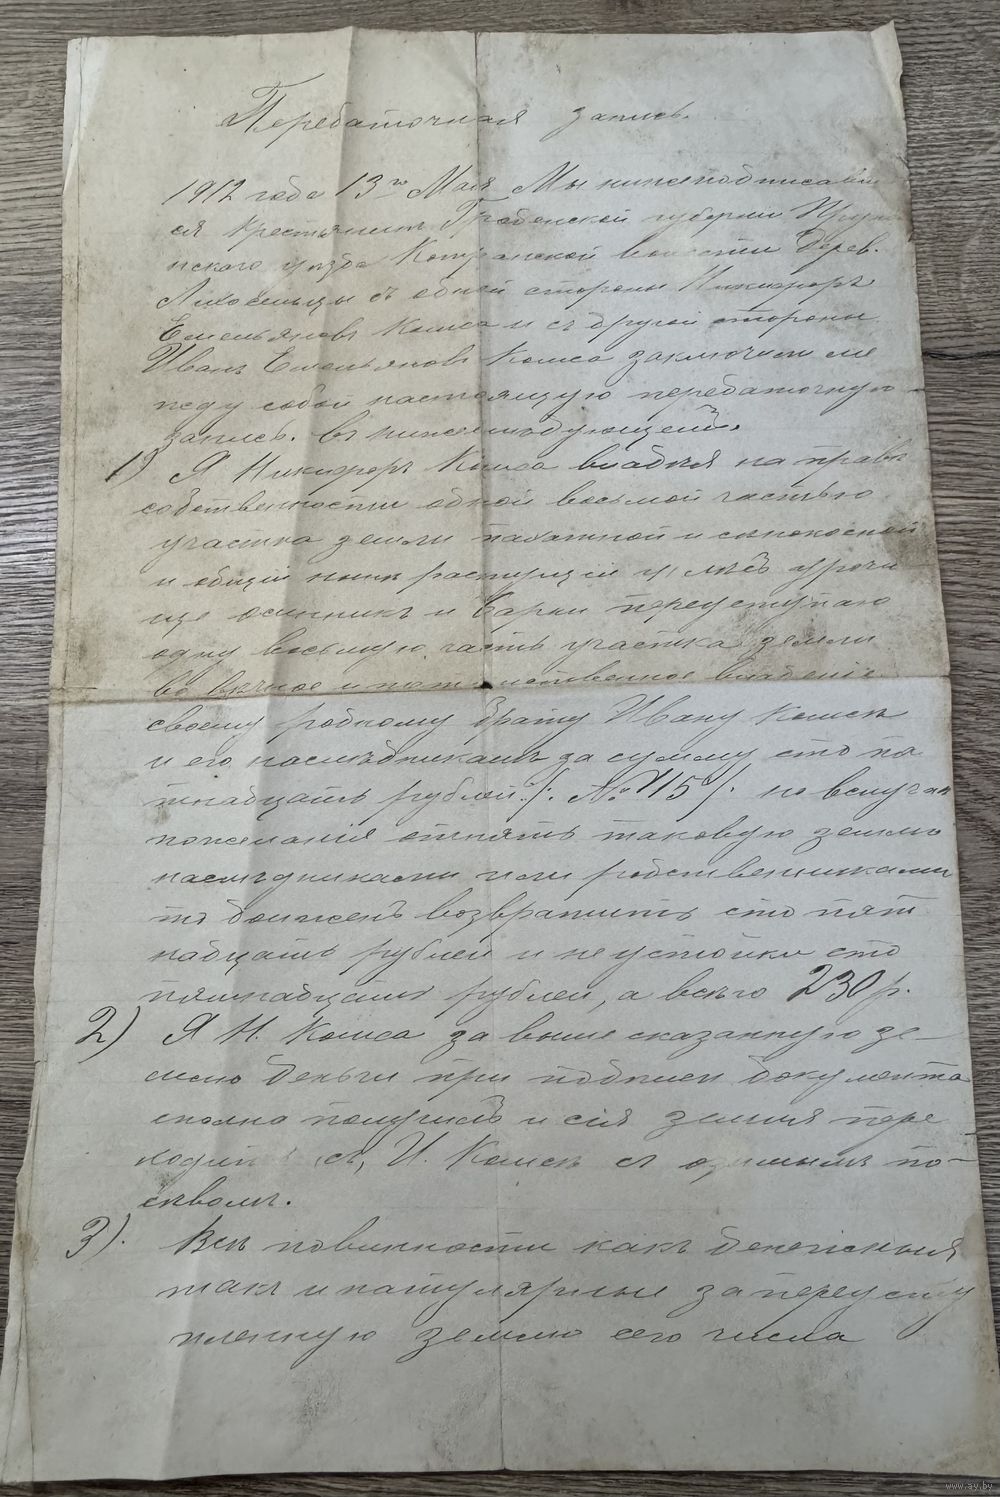 Передаточная запись.
1912 года 13го Мая Мы нижеподписавші
ся крестьянинъ Гродненской губерніи Пружа
нскаго уѣзда Котранской волости дерев.
Лихосельцы съ одной стороны Никифоръ
Емельяновъ Комса и съ другой стороны
Иванъ Емельяновъ Комса заключили ме
жду собой настоящую передаточную
запись. въ нижеслѣдующемъ.
1) Я Никифоръ Комса владѣя на правѣ
собственности одной восьмой частью
участка земли пахатной и сѣнокосной
и общій
ще осинникъ и Барки переуступаю
одну восьмую часть участка земли
во вѣчное и потомственное владеніе
своему родному брату Ивану Комсѣ
и его наслѣдникамъ за сумму сто пя
тнадцать рублей /: № 115 /: но вслучаи
пожеланія отнять таковую землю
наслѣдниками или родственниками
то долженъ возвратить сто пят
надцать рублей и неустойки сто
пятнадцать рублей, а всѣго 230 р.
2) Я Н. Комса за выше сказанную зе-
млю деньги при подписи документа
сполна получилъ и сія земля пере
ходитъ къ, И. Комсѣ съ озимымъ по-
сѣвомъ.
3). Всѣ повинности какъ денежныя
такъ и натулярныя за переусту
пленную землю сего числа
www.ay.by